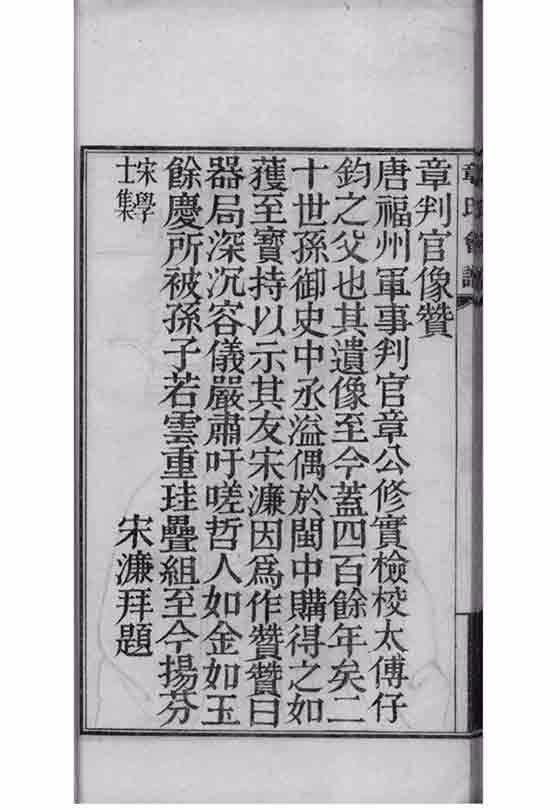 章判官像贊
唐福州軍事判官章公修實檢校太傅仔
鈞之父也其遺像至今蓋四百餘年矣二
十世孫御史中丞溢偶於閩中購得之如
獲至寶持以示其友宋濂因爲作贊贊曰
器局深沉容儀嚴肅吁嗟哲人如金如玉
餘慶所被孫子若雲重珪疊組至今揚芬
宋濂拜題
宋學
士集
章氏會譜